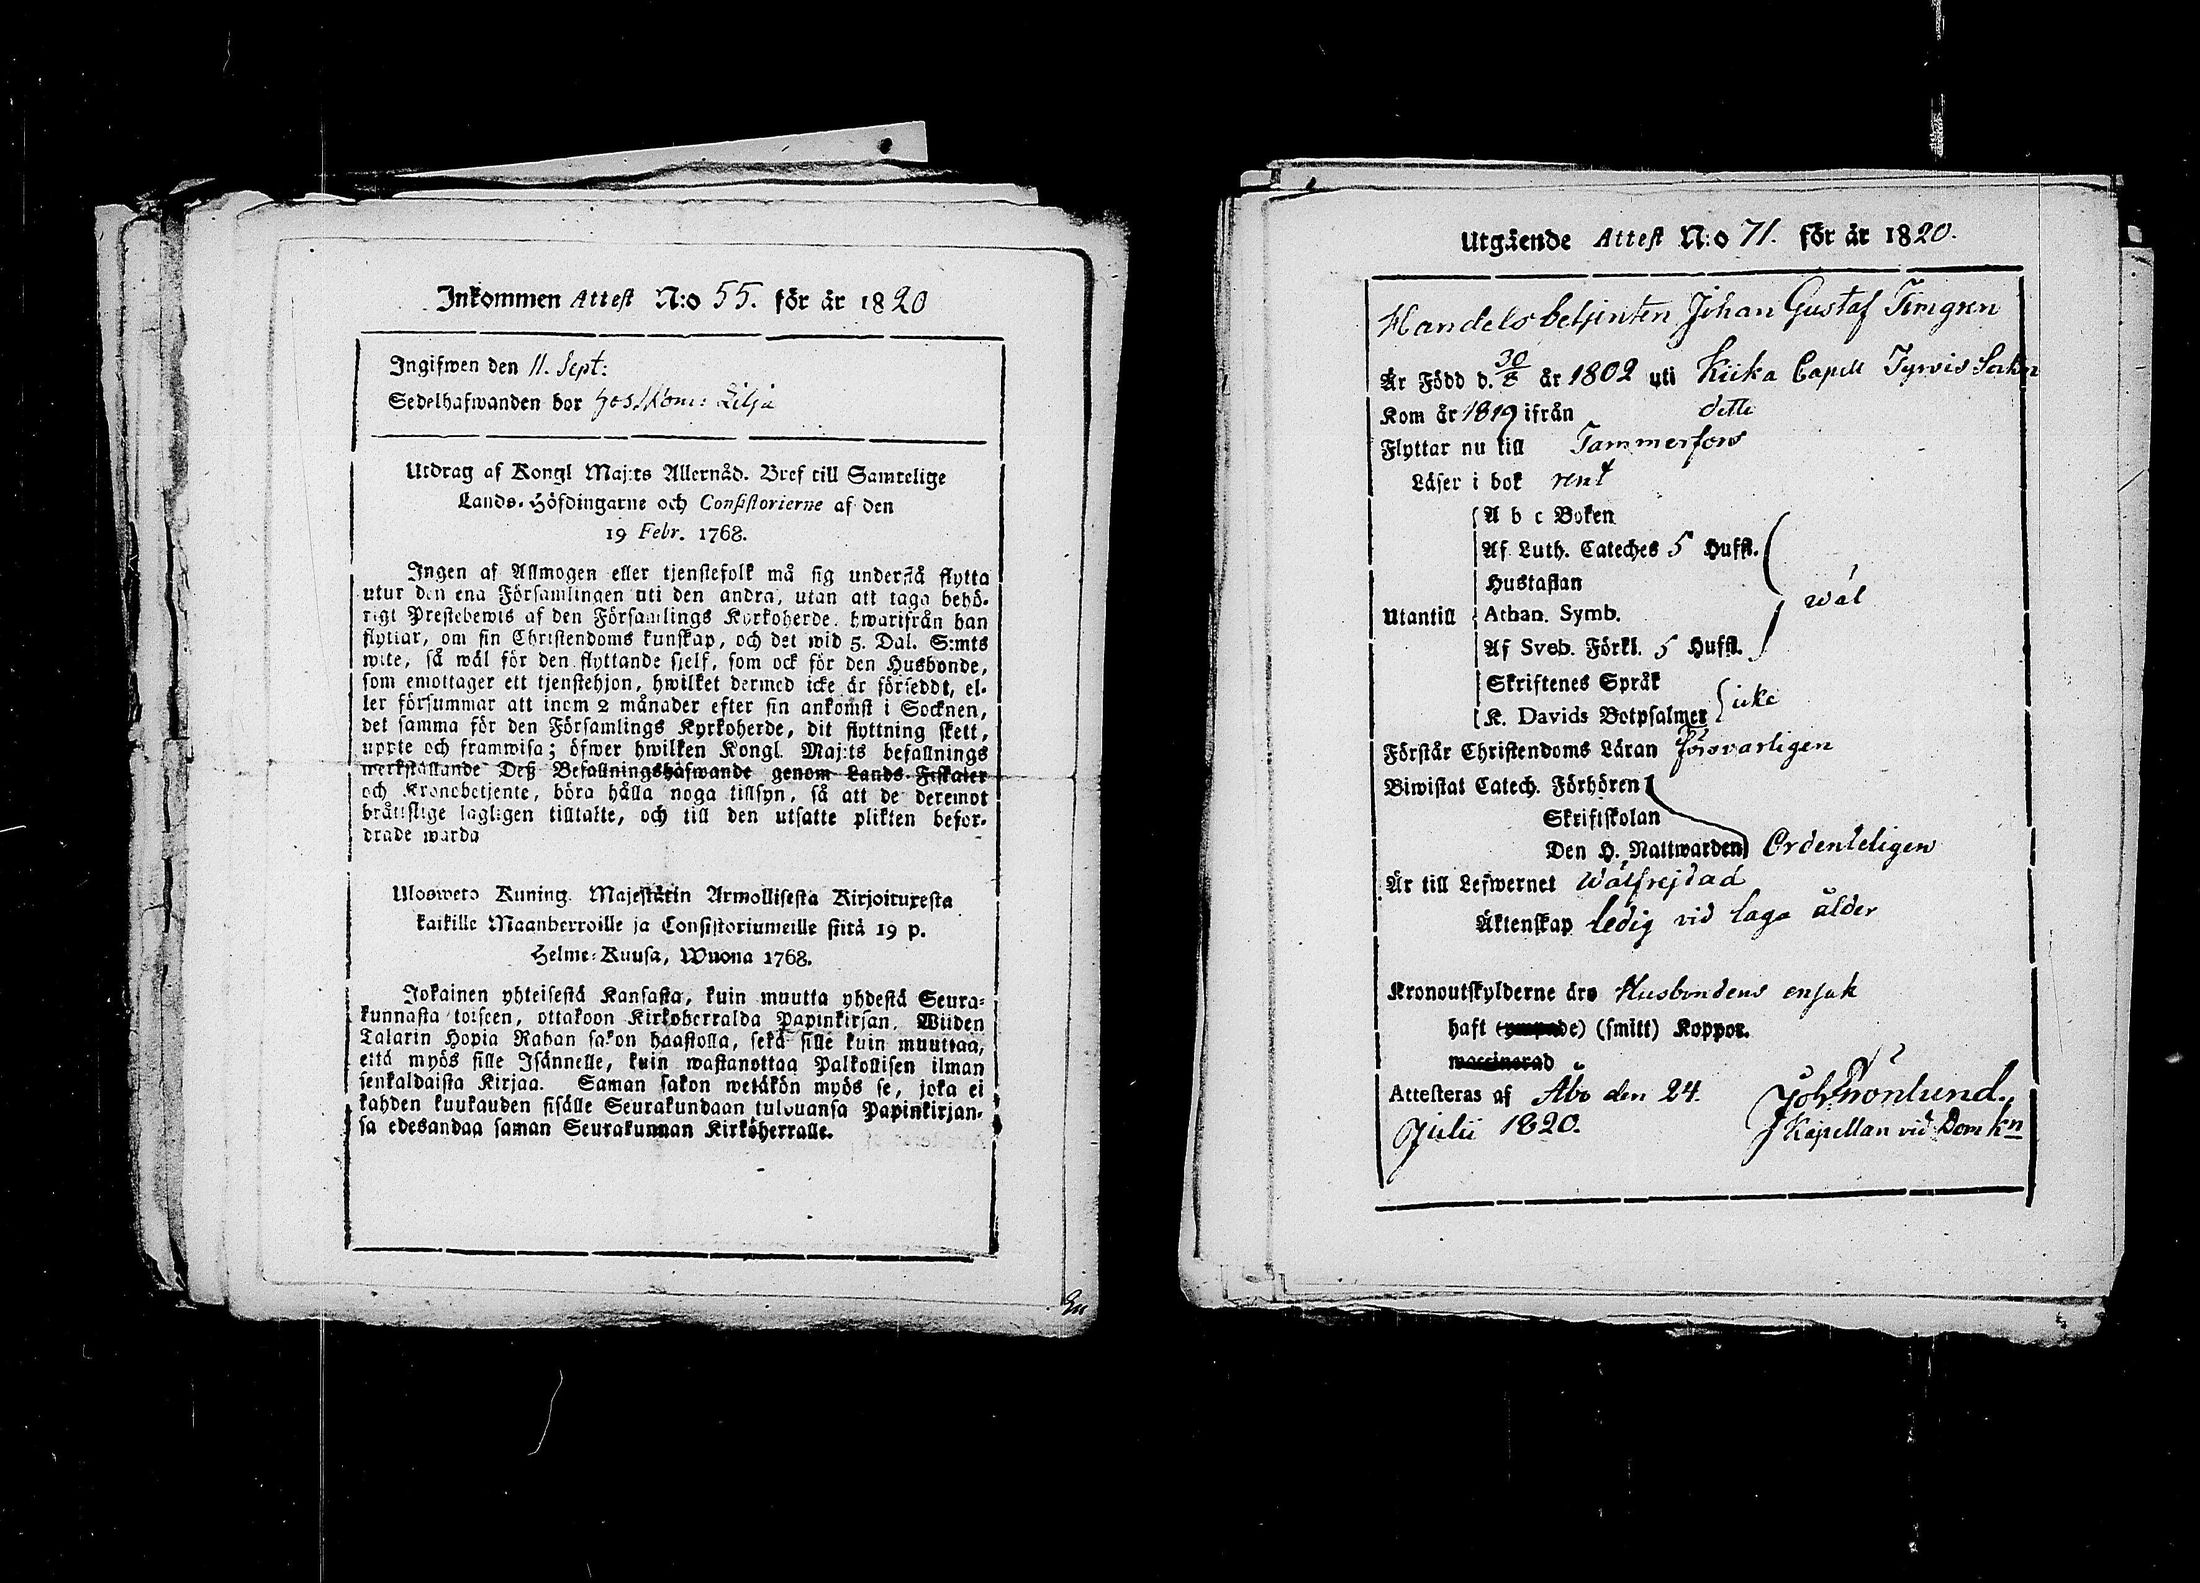 Inkommen Attest N:o 55. för år 1820
Ingifwen den 11. Sept:
Sedelhafwanden bor hos Kom: Lilja
Utdrag af Kongl Maj:ts Allernåd. Bref till Samtelige
Lands-Höfdingarne och Consistorierne af den
19 Febr. 1768.
Ingen af Allmogen eller tjenstefolk må sig understå flytta
utur den ena Församlingen uti den andra, utan att taga behö-
rigt Prestebewis af den Församlings Kyrkoherde, hwarifrån han
flyttar, om sin Christendoms kunskap, och det wid 5. Dal. S:mts
wite, så wäl för den flyttande sjelf, som ock för den Husbonde,
som emottager ett tjenstehjon, hwilket dermed icke är försedt, el-
ler försummar att inom 2 månader efter sin ankomst i Socknen,
det samma för den Församlings Kyrkoherde, dit flyttning skett,
uppte och framwisa; öfwer hwilken Kongl. Maj:ts befallnings
werkställande Deß Befallningshafwande genom Lands-Fiskaler
och Kronobetjente, böra hålla noga tillsyn, så att de deremot
bråttslige lagligen tilltalte, och till den utsatte plikten befor-
drade warda
Ulosweto Kuning. Majestätin Armollisesta Kirjoituxesta
kaikille Maanherroille ja Consistoriumeille siitä 19 p.
Helme-Kuusa, Wuona 1768.
Jokainen yhteisestä Kansasta, kuin muutta yhdestä Seura-
kunnasta toiseen, ottakoon Kirkoherralda Papinkirjan, Wiiden
Talarin Hopia Rahan sakon haastolla, sekä sille kuin muuttaa,
että myös sille Isännelle, kuin wastanottaa Palkollisen ilman
senkaldaista Kirjaa. Saman sakon wetäkön myös se, joka ei
kahden kuukauden sisälle Seurakundaan tulduansa Papinkirjan-
sa edesandaa saman Seurakunnan Kirkoherralle.
Utgående Attest N:o 71. för år 1820.
Handelsbetjenten Johan Gustaf Timgren
Är Född d. 30/8 år 1802 uti Kiika Capell Tyrvis Sokn
Kom år 1819 ifrån dette
Flyttar nu till Tammerfors
Läser i bok rent
A b c Boken
Af Luth. Cateches 5 Hufst.
Hustaflan
Utantill Athan. Symb. wäl
Af Sveb. Förkl. 5 Hufst.
Skriftenes Språk
K. Davids Botpsalmer icke
Förstår Christendoms Läran försvarligen
Biwistat Catech. Förhören
Skriftskolan
Den H. Nattwarden Ordenteligen
Är till Lefwernet Wälfrejdad
Äktenskap ledig vid laga ålder
Kronoutskylderne äro Husbondens ensak
haft (ympade) (smitt) Koppor.
waccinerad
Attesteras af Åbo den 24.
Julii 1820. Joh: Grönlund.
Kapellan vid Domkn